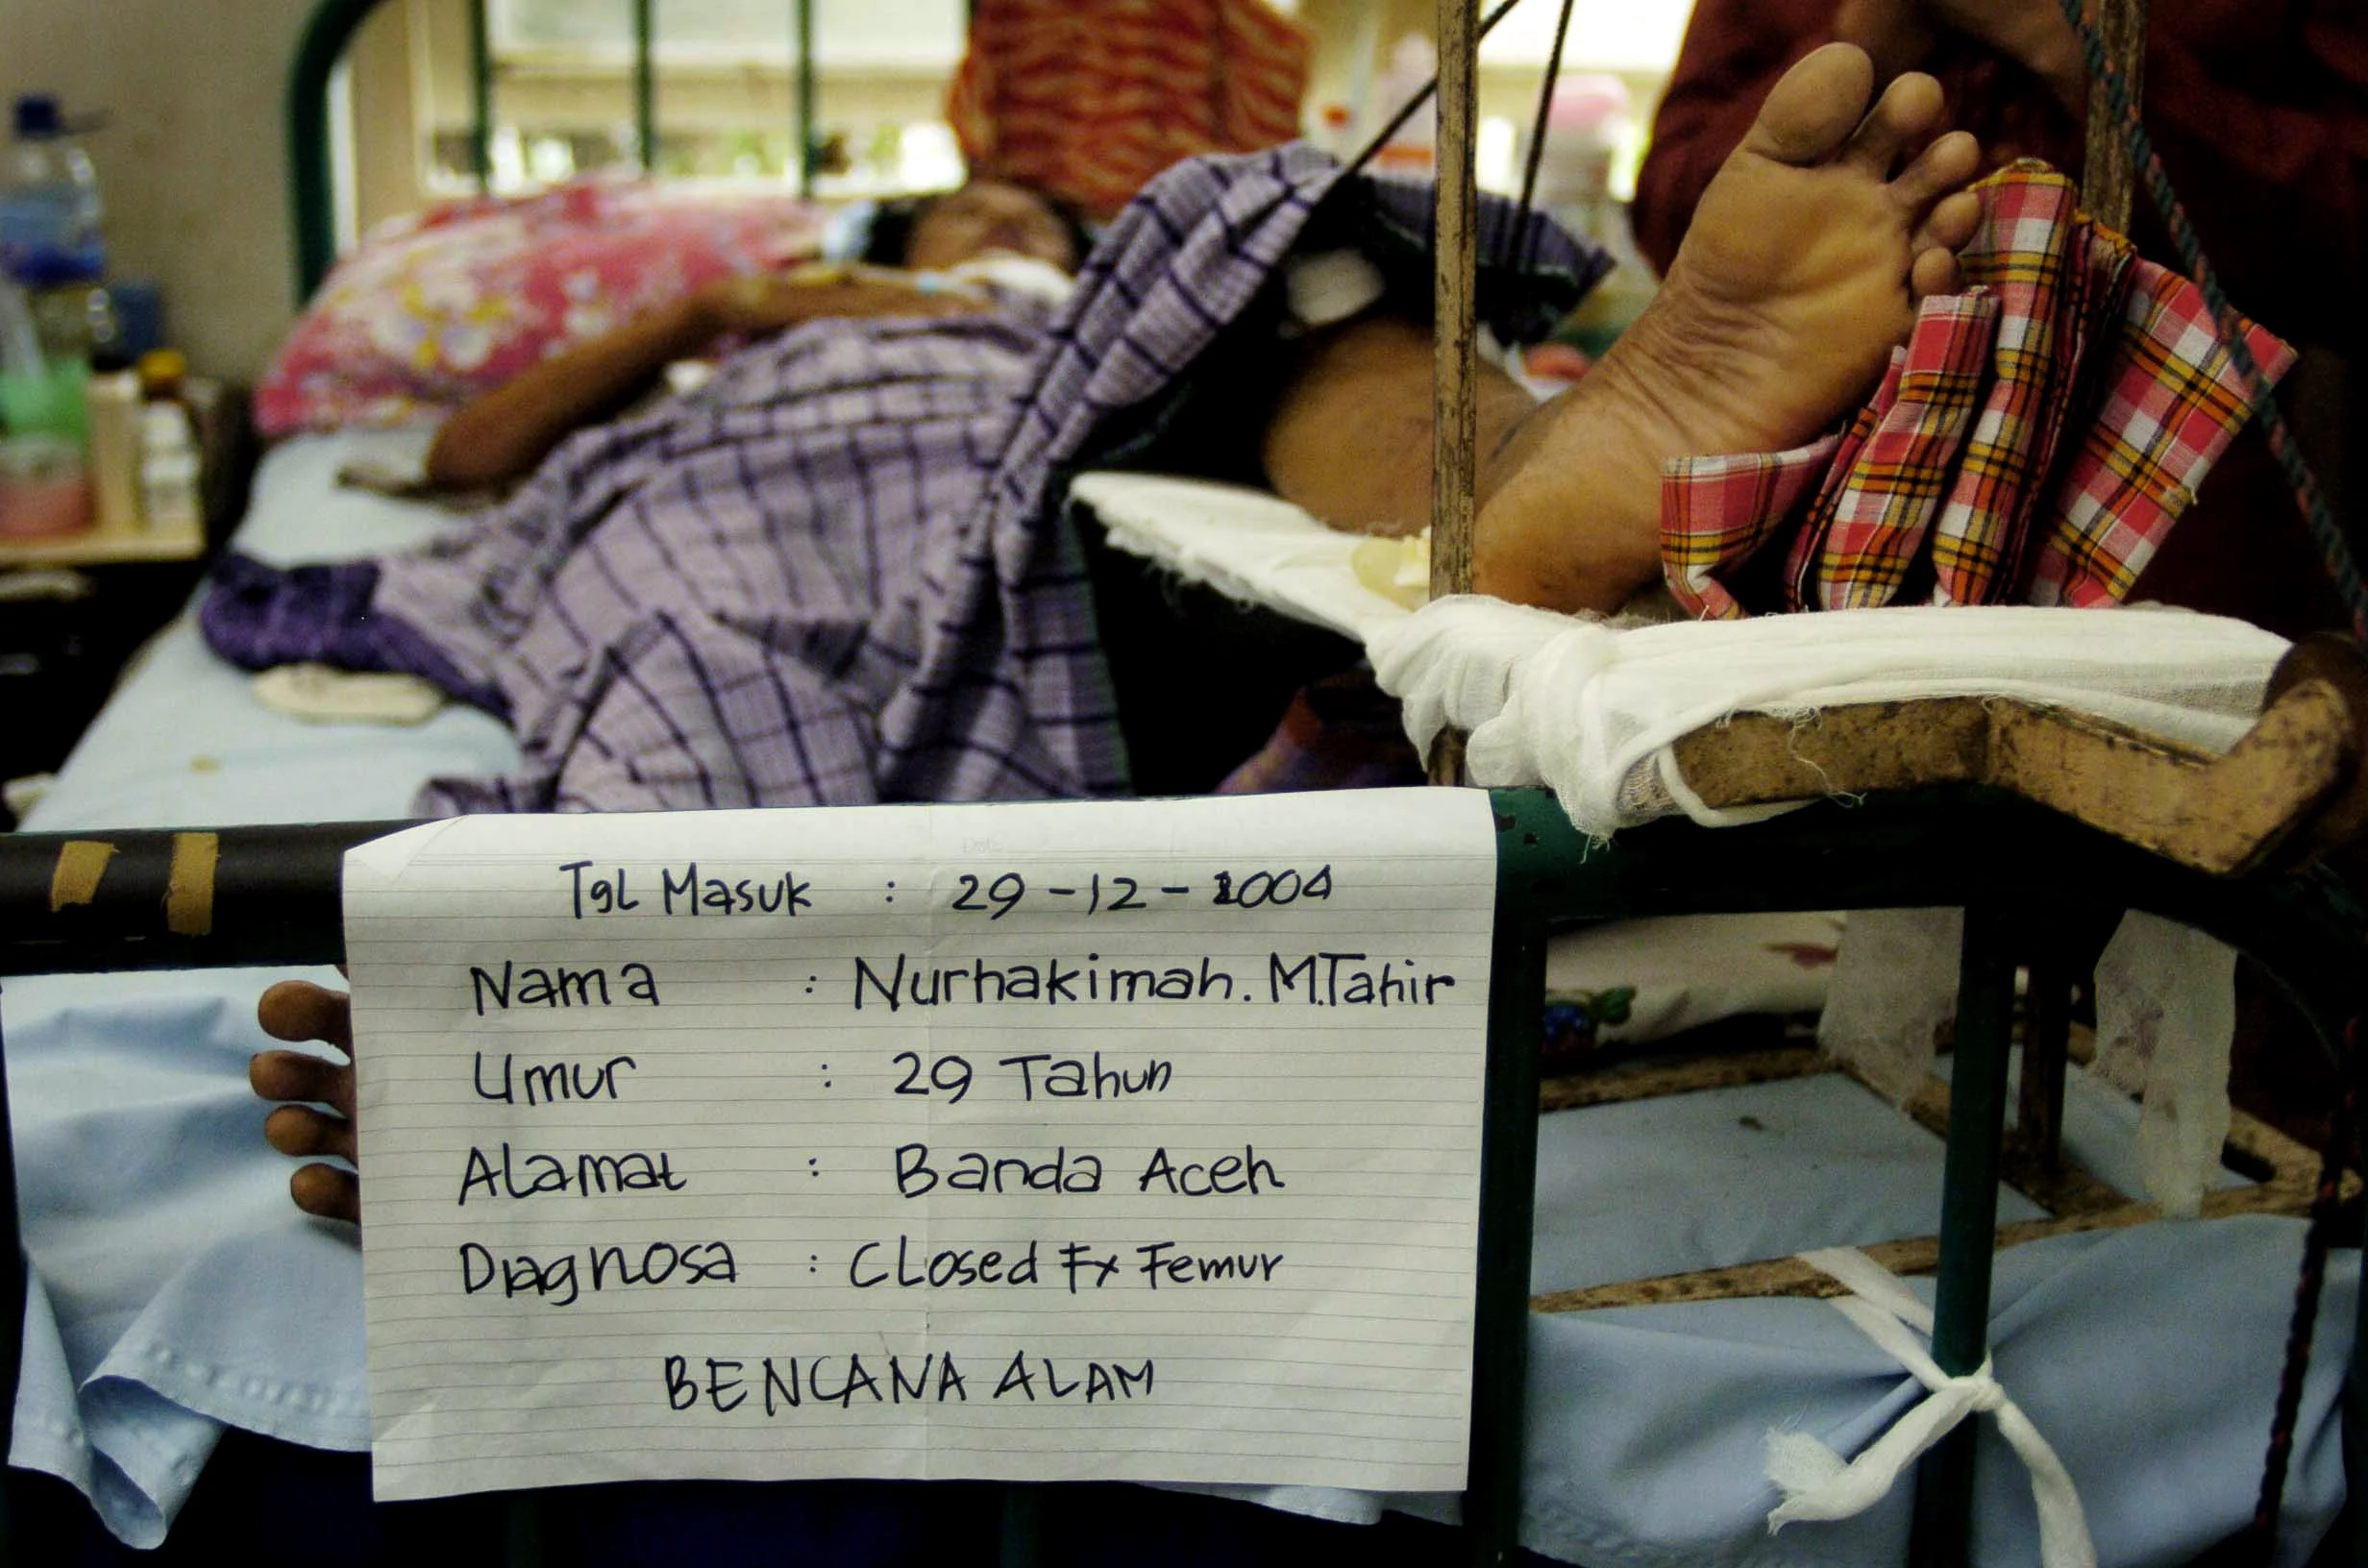 Tgl Masuk : 29-12-2004
Nama : Nurhakimah. M.Tahir
Umur : 29 Tahun
Alamat : Banda Aceh
Diagnosa : Closed Fx Femur
BENCANA ALAM